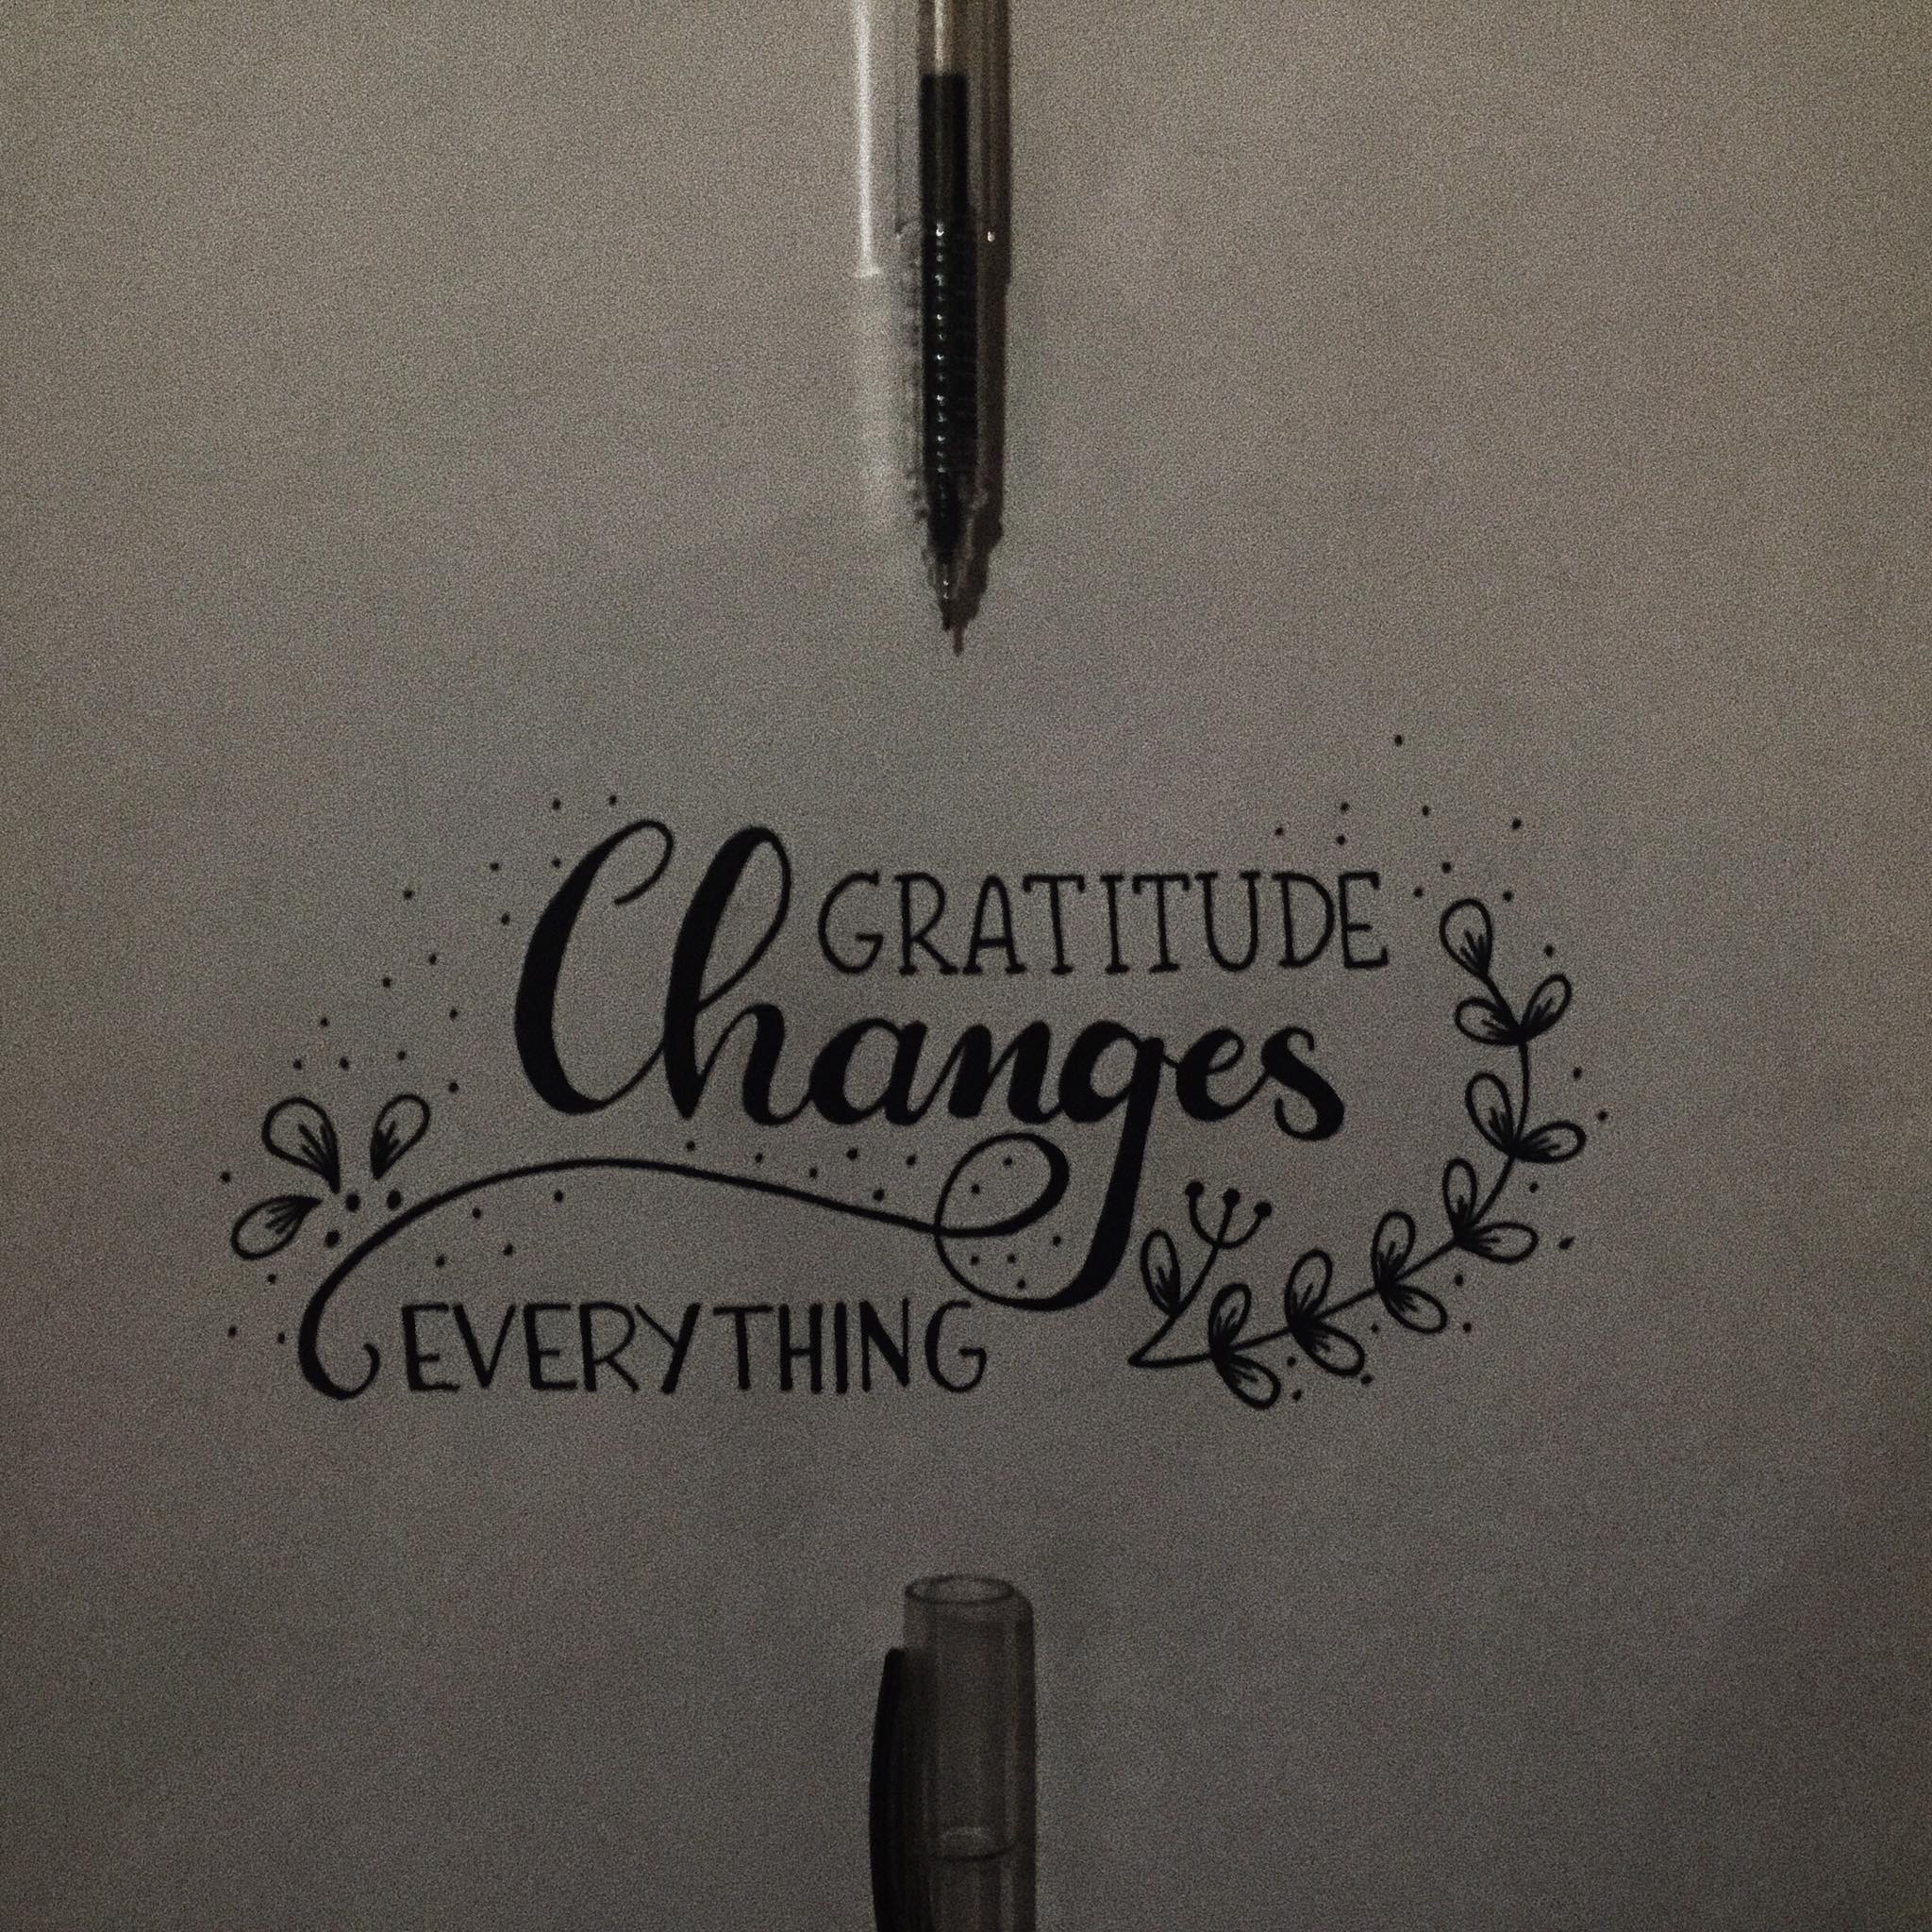 GRATITUDE
Changes
EVERYTHING